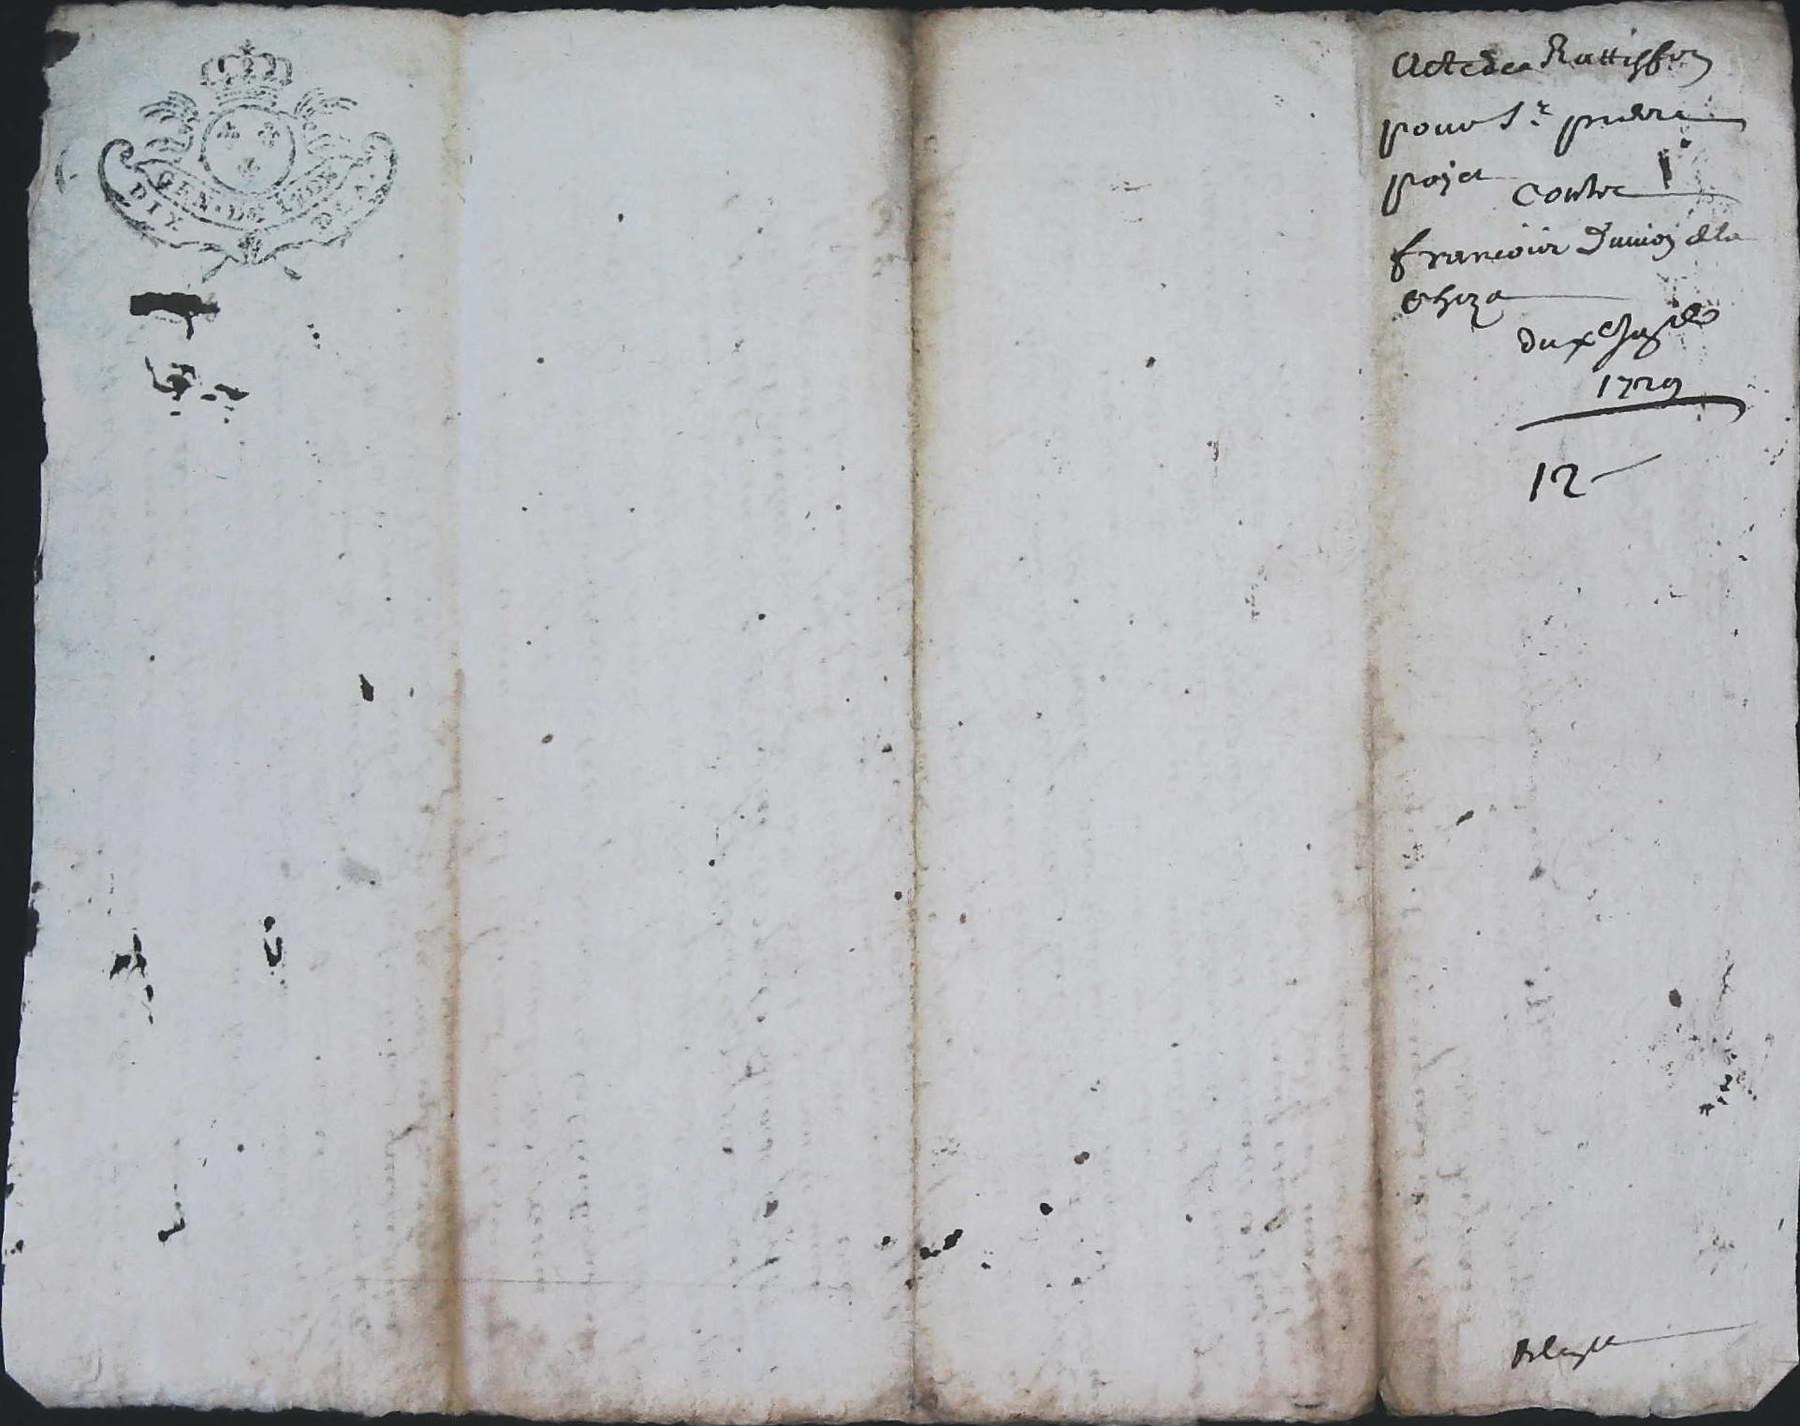 GEN · DE LION
DIX DEN
Acte de Rattiffon
pour Sr. pierre
pojet contre
francois Dumoj dela
Cheza
du xe
1729
12